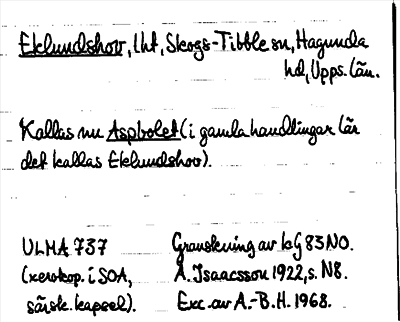 Eklundshov, lht, Skogs-Tibble sn, Hagunda
hd, Upps. län.
Kallas nu Aspbolet (i gamla handlingar lär
det kallas Eklundshov).
ULMA 737
(xerokop. i SOA,
särsk. kapsel).
Granskning av kG 83 NO.
A. Isaacsson 1922, s. N8.
Exc. av A.-B.H. 1968.